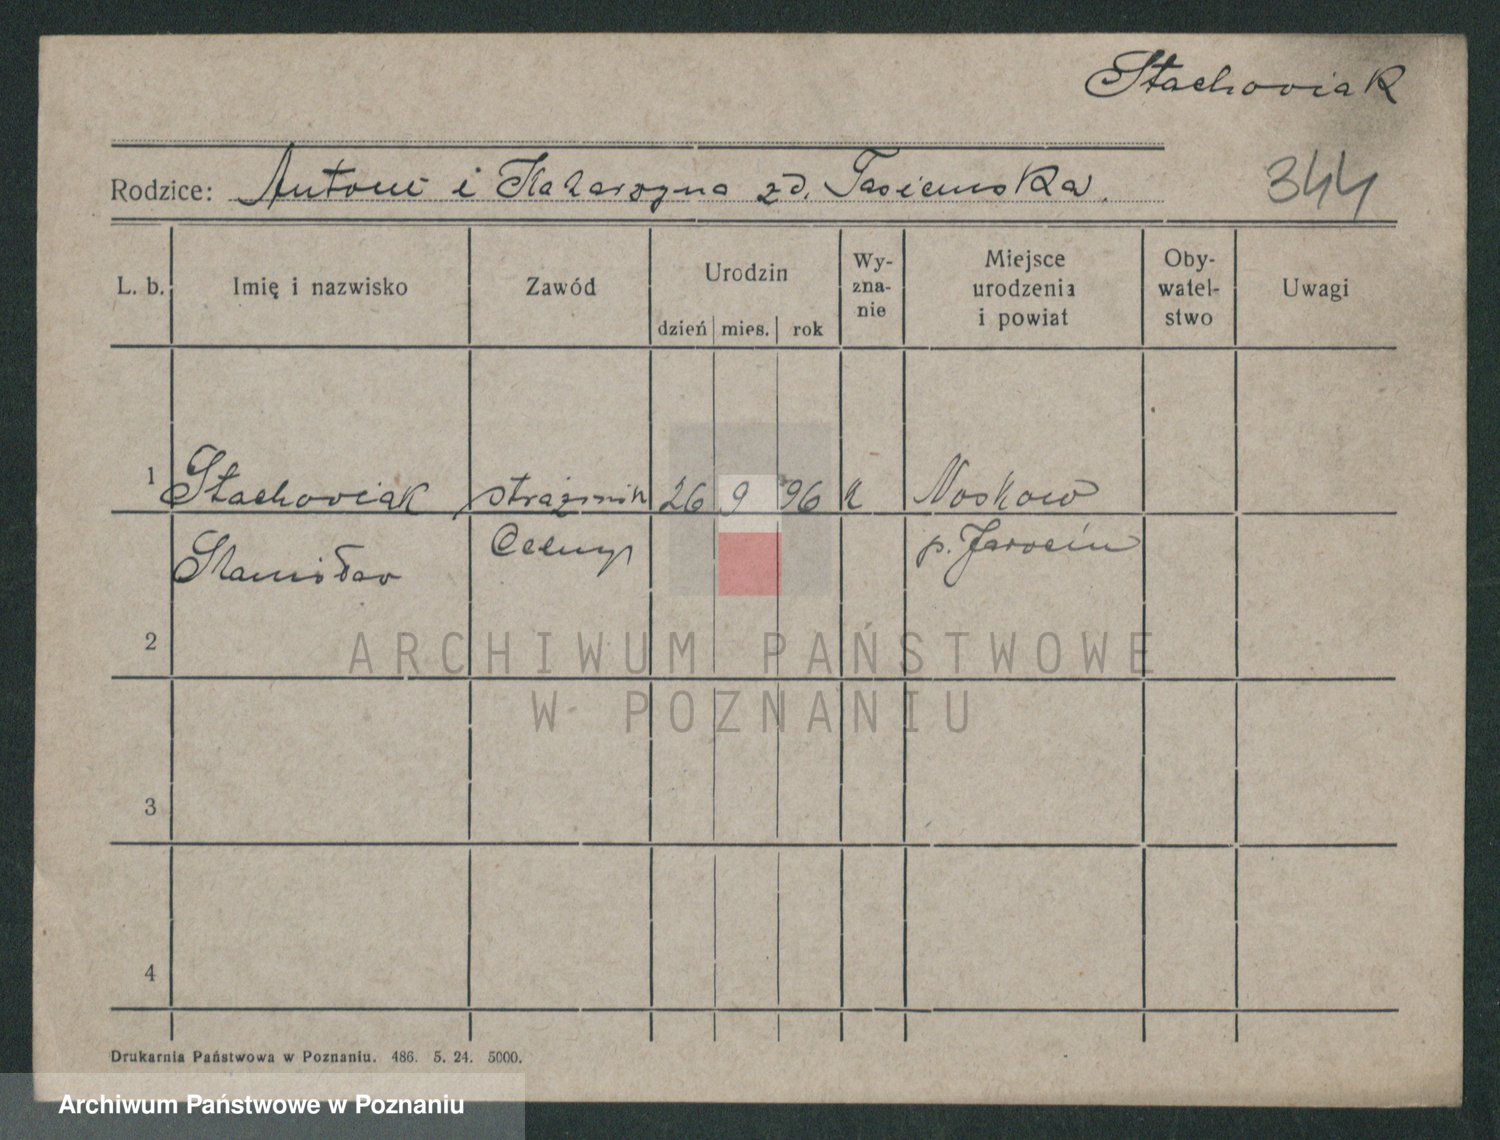 Stachowiak
Rodzice: Antoni i Katarzyna zd. Tasiemska.
344
L. b.
Imię i nazwisko
Zawód
Urodzin
dzień mies. rok
Wy-
zna-
nie
Miejsce
urodzenia
i powiat
Oby-
watel-
stwo
Uwagi
1 Stachowiak strażnik 26 9 96 k Noskow
Stanisław Celny p. Jarocin
2
3
4
ARCHIWUM PAŃSTWOWE
W POZNANIU
Drukarnia Państwowa w Poznaniu. 486. 5. 24. 5000.
Archiwum Państwowe w Poznaniu